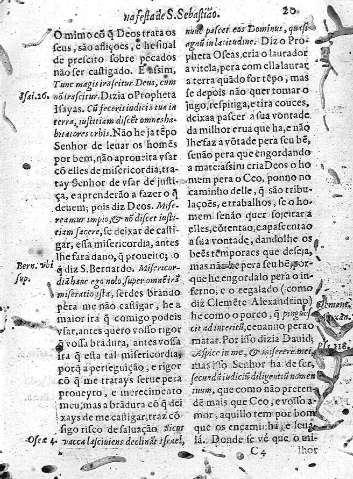 na festa de S. Sebastião. 20
O mimo cõ q̃ Deos trata os
seus, são aflições, & he sinal
de prescito sobre pecados
não ser castigado. E assim,
Tunc magis irascitur Deus, cum
nõ irascitur. Dizia o Propheta
Isai. 26.
Isayas. Cũ feceris iudicia tua in
terra, iustitiam discẽt omnes ha-
bitatores orbis. Não he ja tẽpo
Senhor de leuar os homẽs
por bem, não aproueita vsar
cõ elles de misericordia, tra-
tay Senhor de vsar de justi-
ça, e aprenderão a fazer o q̃
deuem; pois diz Deos. Mise-
reamur impio, & nõ discet iusti-
tiam facere, se deixar de casti-
gar, essa misericordia, antes
lhe fara dano, q̃ proueito; o
Bern. vbi
sup.
q̃ diz S. Bernardo. Misericor-
diã hanc ego nolo, super omnẽ irã
miseratio ista, serdes brando
pera me não castigar, he a
maior ira q̃ comigo podeis
vsar, antes quero vosso rigor
vossa bradura, antes vossa
ira q̃ esta tal misericordia;
porq̃ a perseguição, e rigor
cõ q̃ me tratays serue pera
proueyto, e merecimẽto
meu, mas a brãdura cõ q̃ dei-
xays de me castigar, traz cõ-
sigo risco de saluação. Sicut
Oseæ 4.
vacca lasciuiens declinauit Israel,
nunc pascet eos Dominus, quasi
agnũ in latitudine. Diz o Pro-
pheta Oseas, cria o laurador
a vitela, pera com ella laurar
a terra quãdo for tẽpo, mas
se depois não quer tomar o
jugo, respinga, e tira couces,
deixas pascer a sua vontade
da milhor erua que ha, e não
lhe faz a võtade pera seu bẽ,
senão pera que engordando
a matẽ: assim cria Deos o ho
mem pera o Ceo, ponno no
caminho delle, q̃ são tribu-
lações, e trabalhos, se o ho-
mem senão quer sojeitar a
elles, cõtentao, e apascentao
a sua vontade, dandolhe os
beẽs tẽporaes que deseja,
mas não he pera seu bẽ, por-
que he engordalo pera o in-
ferno; e o regalado (como
Clement.
diz Clemẽte Alexandrino)
he como o porco, q̃ pingue
cit ad interitũ, ceuanno pera o
matar. Por isso dizia Dauid,
Aspice in me, & miserere mei,
mas isso Senhor ha de ser,
secundũ iudiciũ diligentiũ nomen
tuum, que como não preten-
dẽ mais que Ceo, e vosso a-
mor, aquillo tem por bom
que os encami-
lá. Donde se vê que o mi-
C 4 lhor